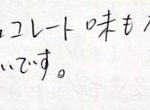 コレート味も
いです。